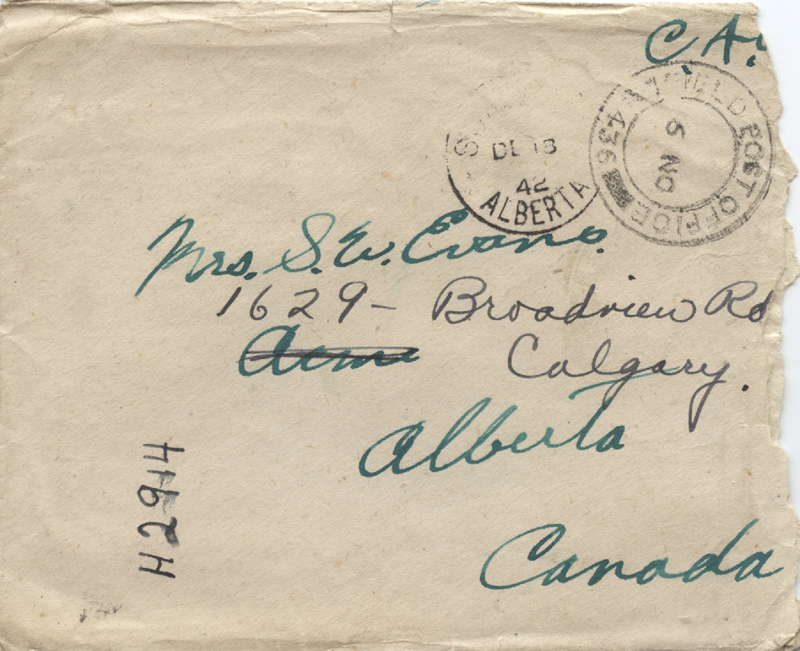 DE 18
42
ALBERTA
FIELD POST OFFICE
436
6 NO
Mrs. S. W. Evans.
1629 - Broadview Rd
Acme Calgary.
Alberta
Canada
H2914